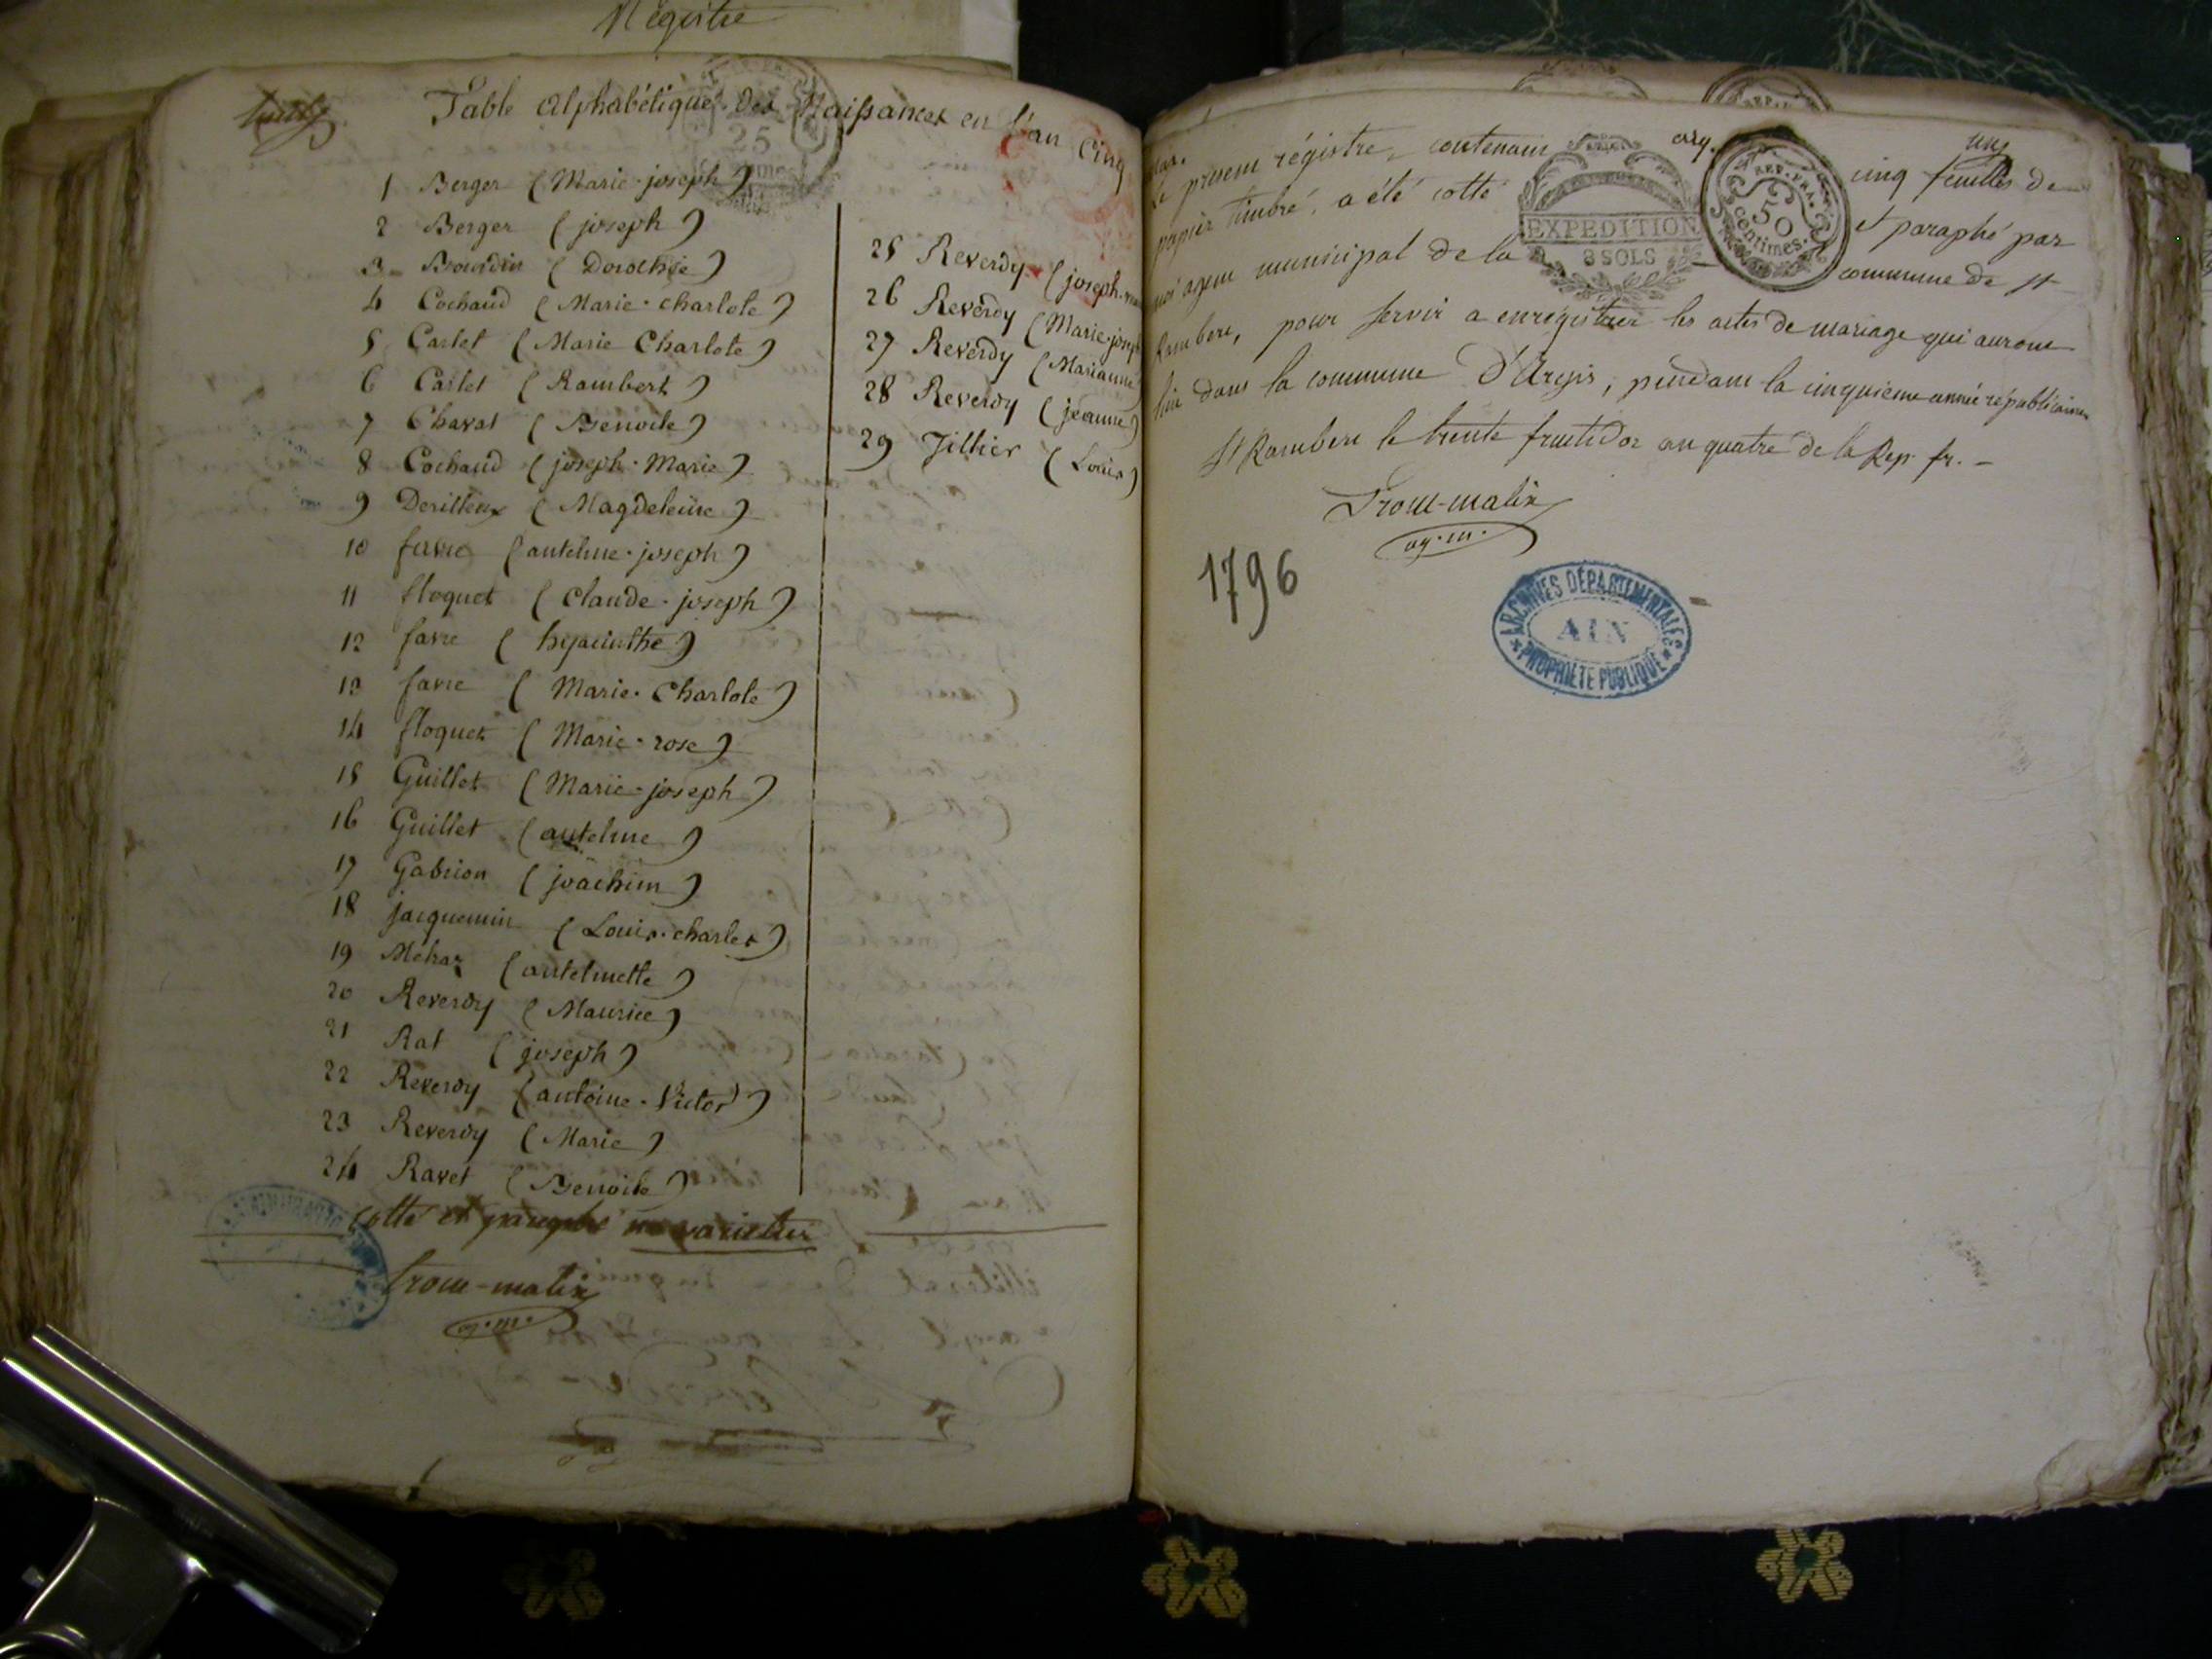 Régistre
Table Alphabétique des Naissances en l'an Cinq
25
1 Berger (Marie-joseph)
2 Berger (joseph)
3 Bourdin (Dorothée)
4 Cochaud (Marie-charlote)
5 Carlet (Marie Charlote)
6 Carlet (Rambert)
7 Chavat (Benoite)
8 Cochaud (joseph-Marie)
9 Derilleux (Magdeleine)
10 favre (antelme-joseph)
11 floquet (Claude-joseph)
12 favre (hyacinthe)
13 favre (Marie-Charlote)
14 floquet (Marie-rose)
15 Guillet (Marie-joseph)
16 Guillet (antelme)
17 Gabrion (joachim)
18 jacquemin (Louis-charles)
19 (antelmette)
20 Reverdy (Maurice)
21 Rat (joseph)
22 Reverdy (antoine-Victor)
23 Reverdy (Marie)
24 Ravet (Benoite)
25 Reverdy (joseph
26 Reverdy (Marie-joseph
27 Reverdy (Marianne
28 Reverdy (jeanne)
29 Tillier (Louis)
Cotté et paraphé ne varietur
Trout-matix
ag. m.
mar. arg. un
Le présent régistre, contenant cinq feuilles de
papier timbré, a été cotté et paraphé par
moi agent municipal de la commune de St
Rambert, pour servir a enregistrer les actes de mariage qui auront
lieu dans la commune D'Argis, pendant la cinquieme année républicaine
St Rambert le trente fructidor an quatre de la Rep. fr. -
Trout-matix
ag. m.
EXPEDITION
8 SOLS
REP. FRA.
50
centimes.
1796
ARCHIVES DÉPARTEMENTALES
AIN
PROPRIÉTÉ PUBLIQUE